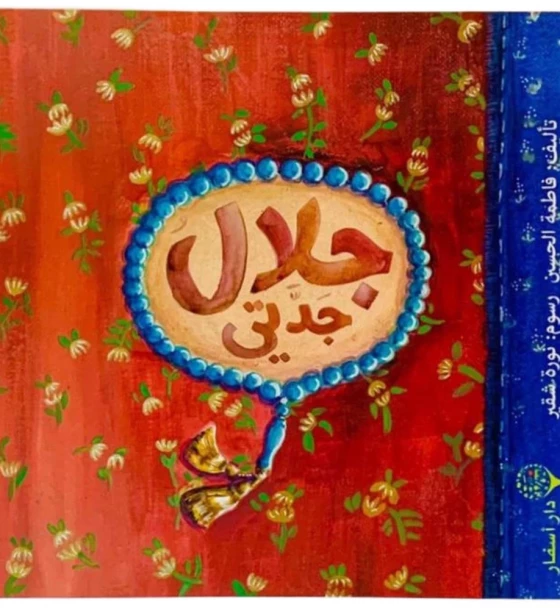 جلال
جدّتي
تأليف: فاطمة الحسين رسوم: نورة شقير
دار أسفار